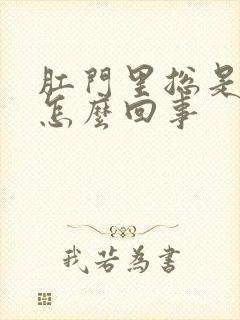 肛門里总是
怎麼回事
我若為書